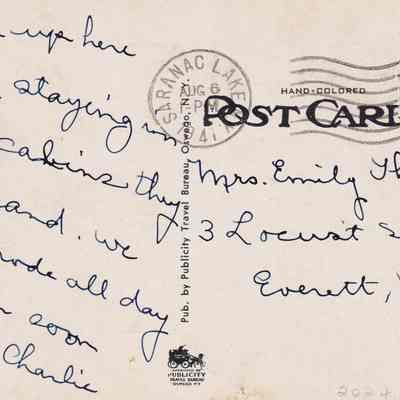 up here
staying in
cabins they
and. we
rode all day
soon
Charlie
SARANAC LAKE
AUG 6
PM
1941
HAND-COLORED
POST CARD
Mrs. Emily Th
3 Locust S
Everett,
Pub. by Publicity Travel Bureau, Oswego, N.Y.
PUBLICITY
TRAVEL BUREAU
OSWEGO N.Y.
2024